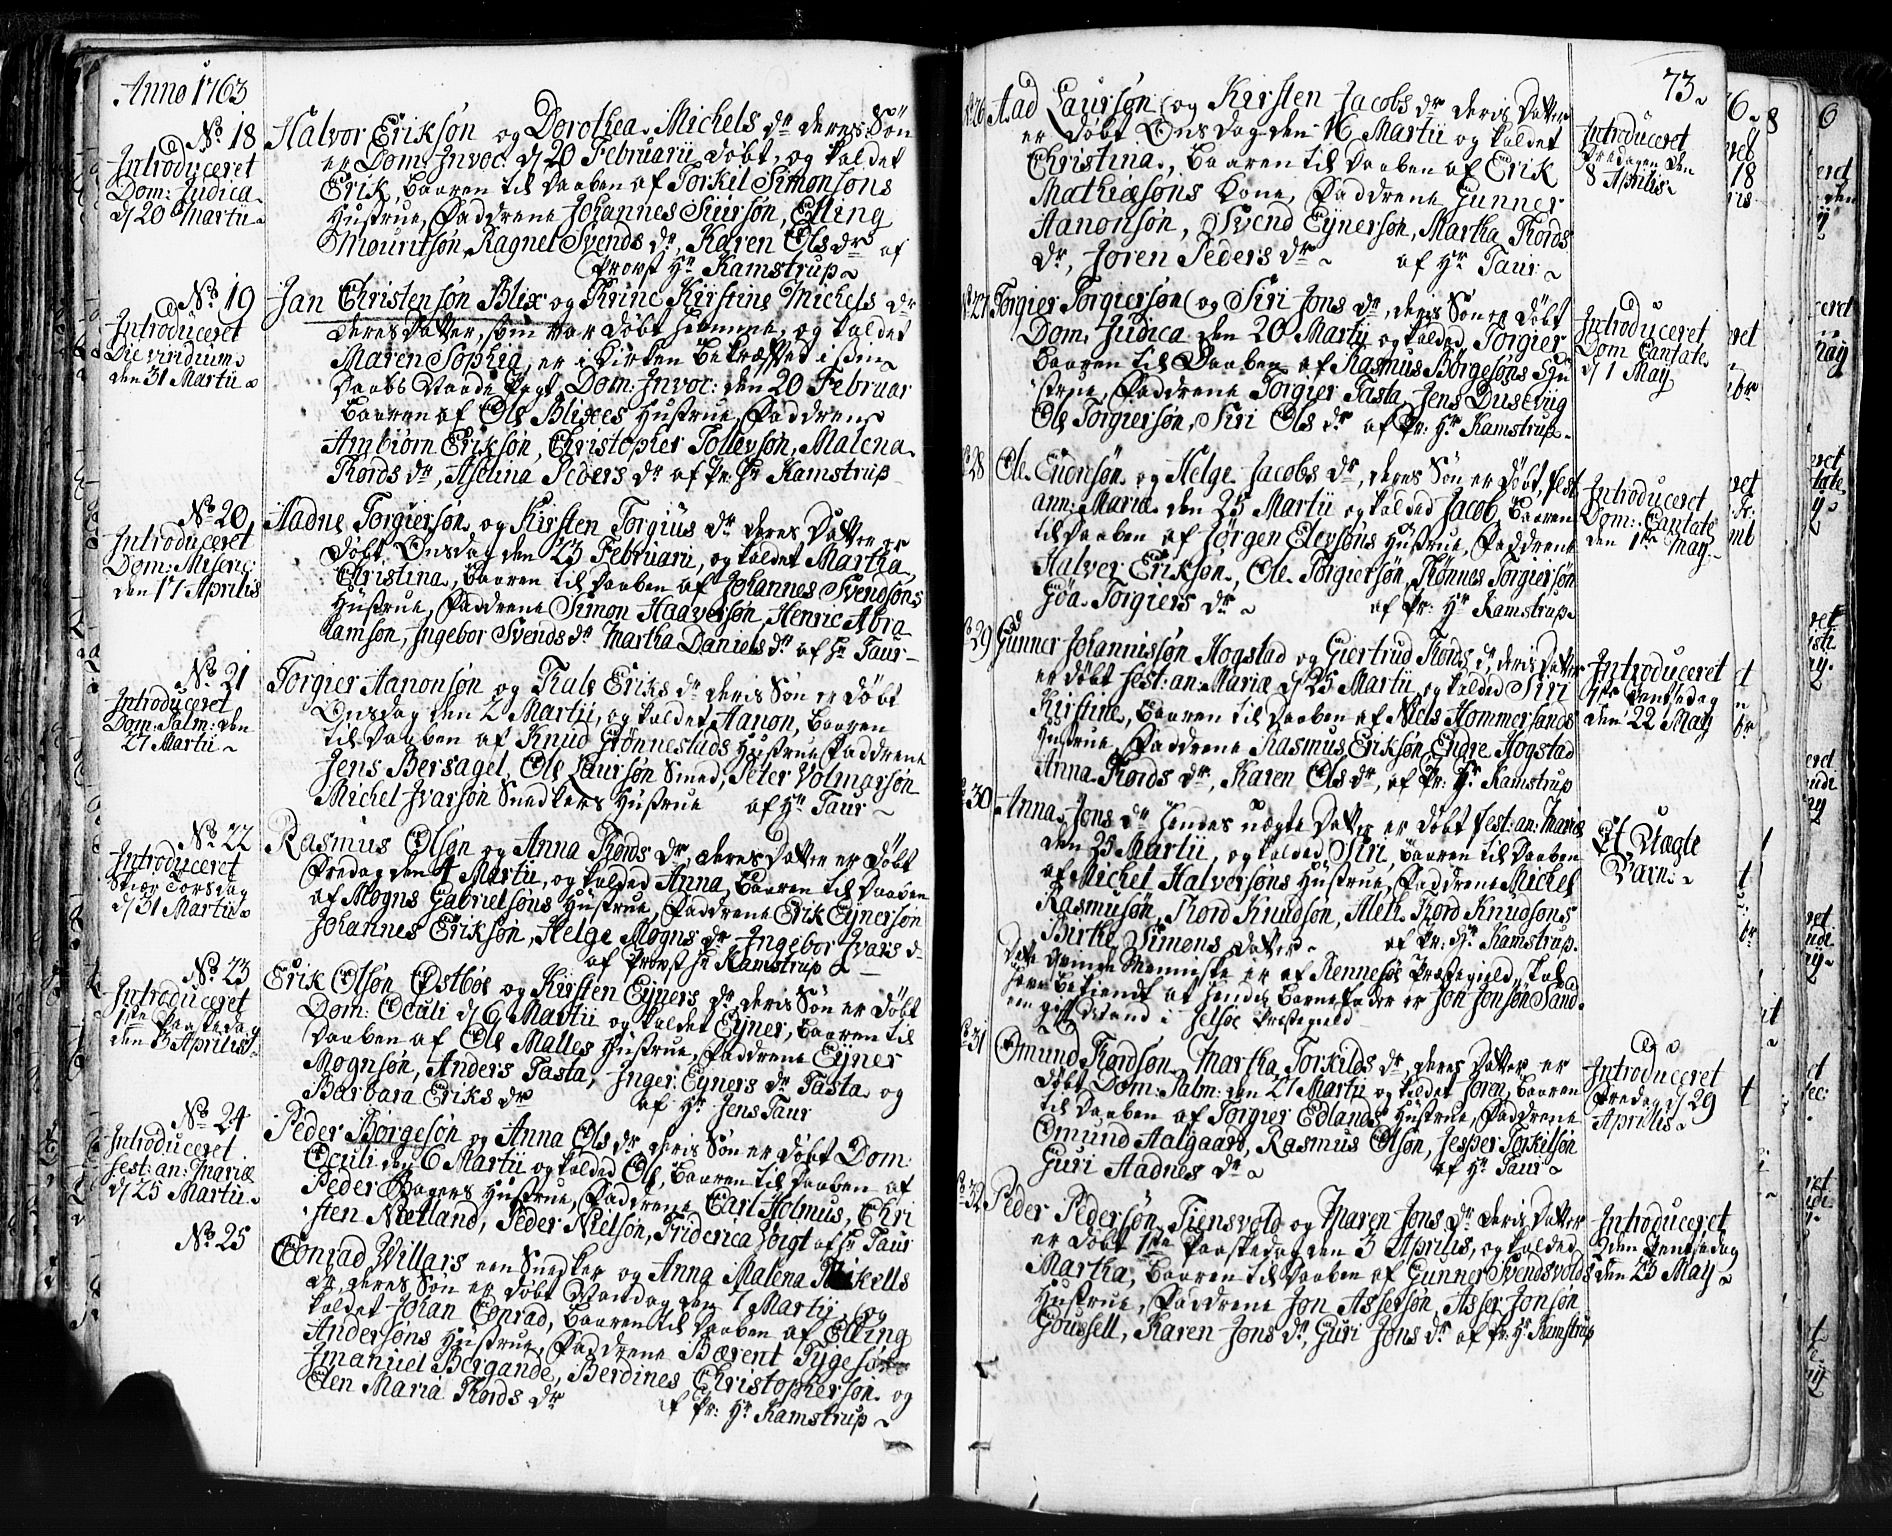 Anno 1763
No 18
Introduceret
Dom: Judica
d/ 20 Martii
Halvor Eriksøn og Dorothea Michels dr deres Søn
er Dom. Invoc: d/ 20 Februarii døbt, og kaldet
Erik, baaren til daaben af Torkel Simonsøns
Hustrue, Faddrene Johannes Siursøn, Elling
Mouritsøn, Ragnel Svends dr, Karen Ols dr af
Provst Hr Kamstrup
No 19
Introduceret
Die viridium
den 31 Martii
Jan Christensøn Blix og Trine Kirstine Michels dr
deres Datter, som var døbt hiemme, og kaldet
Maren Sophia, er i Kirken bekræftet i sin
Daabs Naade Pagt, Dom. Invoc: den 20 Februar
baaren af Ole Blixes Hustrue, Faddrene
Ambiørn Eriksøn, Christopher Tollevsøn, Malena
Thords dr, Aselina Peders dr af Pr: Hr Kamstrup
No 20
Introduceret
Dom: Miseric:
den 17 Aprilis
Aadne Torgiersøn og Kirsten Torgiüs dr deres Datter er
døbt Onsdag den 23 Februarii, og kaldet Martha
Christina, baaren til daaben af Johannes Svendsøns
Hustrue, Faddrene Simon Haaversøn, Henric Abra
hamsøn, Ingebor Svends dr Martha Daniels dr af Hr Taur
No 21
Introduceret
Dom: Palm: den
27 Martii
Torgier Aanonsøn og Thale Eriks dr deris Søn er døbt
Onsdag den 2 Martii, og kaldet Aanon, baaren
til daaben af Knud Grønnestads Hustrue Faddrene
Jens Bersagel, Ole Laursøn Smed, Peter Volmarsøn
Michel Ivarsøn Snedkers Hustrue af Hr Taur
No 22
Introduceret
Skiær Torsdag
d/ 31 Martii
Rasmus Olsøn og Anna Thords dr, deres Datter er døbt
Fredag den 4 Martii, og kaldet Anna, baaren til daaben
af Mogns Gabrielsøns Hustrue, Faddrene Erik Eynersøn
Johannes Eriksøn, Helge Mogns dr Ingebor Ivars dr
af Provst Hr Kamstrup
No 23
Introduceret
1ste Paaskedag
den 3 Aprilis
Erik Olsøn Østbøe og Kirsten Eyners dr, deris Søn er døbt
Dom: Oculi d/ 6 Martii og kaldet Eyner, baaren til
daaben af Ole Malles Hustrue, Faddrene Eyner
Mognsøn, Anders Tasta, Inger Eyners dr Tasta og
Barbara Eriks dr af Hr Jens Taur
No 24
Introduceret
fest: an: Mariæ
d/ 25 Martii
Peder Børgesøn og Anna Ols dr deris Søn er døbt Dom:
Oculi den 6 Martii og kaldet Ole, baaren til daaben af
Peder Bagers Hustrue, Faddrene Carl Holmus, Chri
sten Nætland, Peder Nielsøn, Friderica Voigt af Hr Taur
No 25
Conrad Willars een Snedker og Anna Malena Mikells
dr, deres Søn er døbt Mandag den 7 Martij, og
kaldet Johan Conrad, baaren til daaben af Elling
Andersøns Hustrue, Faddrene Bærent Tygesøn
Imanuel Bergande, Berdines Christophersøn og
Elen Maria Thords dr af Pr: Hr Kamstrup
73
No 26
Introduceret
Fredagen den
8 Aprilis
Aad Laursøn og Kirsten Jacobs dr deris Datter
er døbt Onsdag den 16 Martii og kaldet
Christina, baaren til daaben af Erik
Mathiæsøns Kone, Faddrene Gunner
Aanonsøn, Svend Eynersøn, Martha Thords
dr, Joren Peders dr af Hr Taur
No 27
Introduceret
Dom Cantate
d/ 1 May
Torgier Torgiersøn og Siri Jons dr, deris Søn er døbt
Dom. Judica den 20 Martij og kaldet Torgier
baaren til daaben af Rasmus Børgesøns Hu
strue, Faddrene Torgier Tasta, Jens Dusevig
Ole Torgiersøn, Siri Ols dr af Pr: Hr Kamstrup
No 28
Introduceret
Dom: Cantate
den 1ste May
Ole Enonsøn og Helge Jacobs dr, deris Søn er døbt, fest
ann: Mariæ den 25 Martii og kaldet Jacob, baaren
til daaben af Jørgen Elevsøns Hustrue, Faddrene
Halver Eriksøn, Ole Torgiersøn, Thønnes Torgiersøn
Göa Torgiers dr af Pr: Hr Kamstrup
No 29
Introduceret
1ste Pentsedag
den 22 May
Gunner Johannissøn Hogstad og Giertrud Thords dr, deris Datter
er døbt fest: an: Mariæ d/ 25 Martii, og kaldet Siri
Kirstine, baaren til daaben af Niels Hommersands
Hustrue, Faddrene Rasmus Eriksøn, Endre Hogstad
Anna Thords dr, Karen Ols dr, af Pr: Hr Kamstrup
No 30
Et Uægte
Barn
Anna Jons dr hendes uægte Datter er døbt fest: an: Mariæ
den 25 Martii, og kaldet Siri, baaren til daaben
af Michel Halversøns Hustrue, Faddrene Michel
Rasmusøn, Thord Knudsøn, Aleth Thord Knudsøns
Birthe Simons datter af Pr: Hr Kamstrup
dette qvinde Menniske er af Rennesøe Præstegield, skal
have bekiendt at hendes Barnefader er Jon Jonsøn Sand
een gift Mand i Jelsøe Præstegield
No 31
Introduceret
Fredag d/ 29
Aprilis
Omund Thordsøn Martha Torkilds dr, deres Datter er
døbt Dom: Palm: den 27 Martij og kaldet Joren, baaren
til daaben af Torgier Edlands Hustrue, Faddrene
Omund Aalgaard, Rasmus Olsøn, Jesper Torkilsøn
Guri Aadnes dr af Hr Taur
No 32
Introduceret
2den Pentsedag
den 23 May
Peder Pedersøn Tiensvold og Maren Jons dr deris Datter
er døbt 1ste Paaskedag den 3 Aprilis, og kaldet
Martha, baaren til daaben af Gunner Svendsvolds
Hustrue, Faddrene Jon Assersøn, Asser Jonsøn
Goussell, Karen Jons dr, Guri Jons dr af Pr: Hr Kamstrup